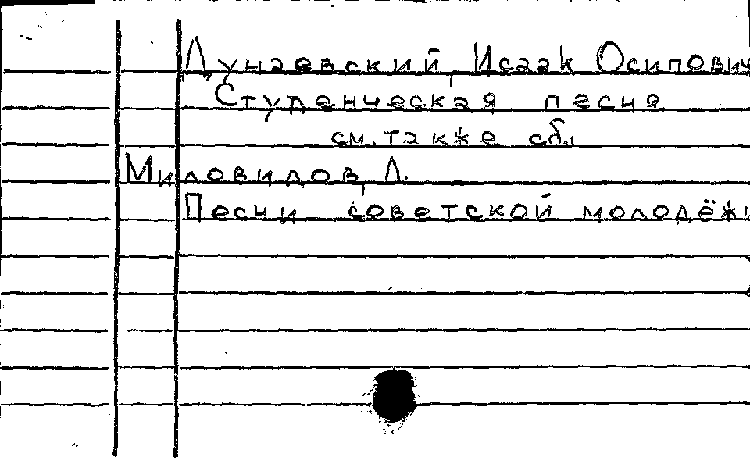 Дунаевский, Исаак Осипович
Студенческая песня
см. также сб.
Миловидов, Л.
Песни советской молодёжи